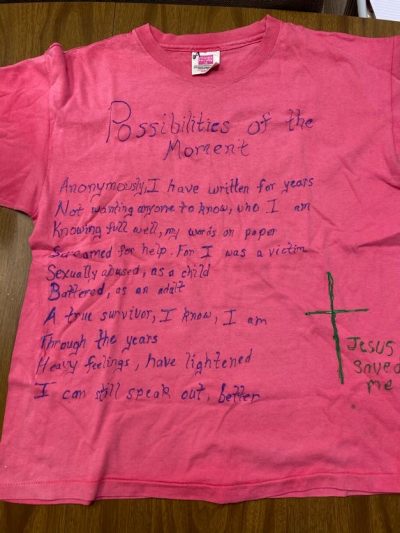 Possibilities of the
Moment
Anonymously, I have written for years
Not wanting anyone to know, who I am
Knowing full well, my words on paper
Screamed for help. For I was a victim
Sexually abused, as a child
Battered, as an adult
A true survivor, I know, I am
Through the years
Heavy feelings, have lightened
I can still speak out, better
Jesus
saved
me